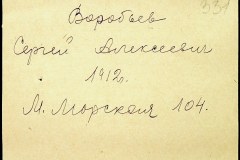 Воробьев
Сергей Алексеевич
1912г.
М. Морская 104.